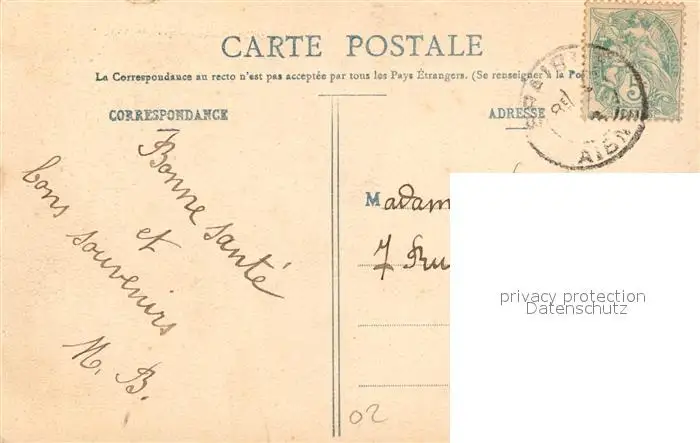 CARTE POSTALE
La Correspondance au recto n'est pas acceptée par tous les Pays Étrangers. (Se renseigner à la
CORRESPONDANCE
ADRESSE
Bonne santé
et
bons souvenirs
M. B.
Madam
7 Ru
privacy protection
Datenschutz
02
5
AIN